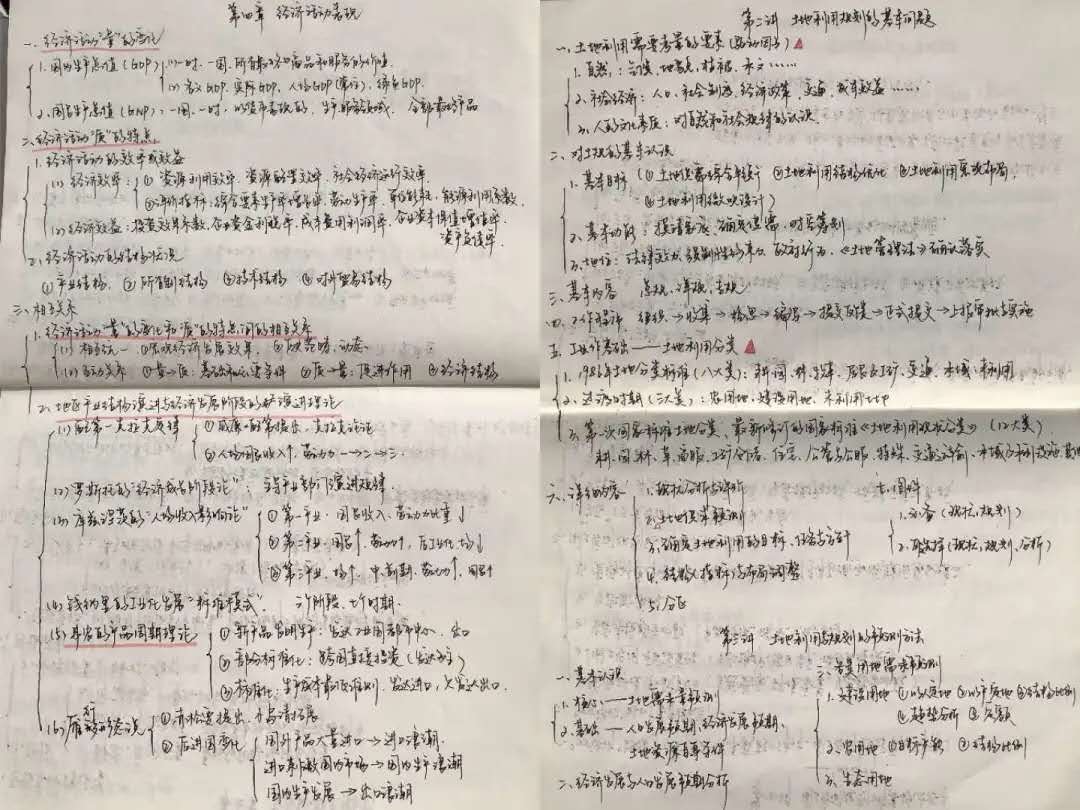 第四章 经济活动基础
一、经济活动"量"的变化
1. 国内生产总值(GDP) (1) 一时、一国、所有最终产品和服务的价值
(2) 名义GDP、实际GDP、人均GDP(常行)、绿色GDP
2. 国民生产总值(GNP):一国、一时、以货币表现的、全部最终产品
二、经济活动"质"的特点
1. 经济活动的效率或效益
(1) 经济效率:① 资源利用效率、资源配置效率、社会经济运行效率
②评价指标:综合要素生产率增长率、劳动生产率、单位能耗、能源利用系数
(2) 经济效益:投资效果系数、企业资金利税率、成本费用利润率、企业资本保值增值率、
资产负债率
2. 经济活动的结构状况
① 产业结构、② 所有制结构 ③技术结构 ④ 对外贸易结构
三、相互关系
1. 经济活动"量"的变化和"质"的特点间的相互关系
(1) 相互统一 ①系统经济发展效果、②反映、动态
(2) 互动关系 ①量→质:基础和必要条件 ②质→量:促进作用 ③经济结构
2. 地区产业结构演进与经济发展阶段的推演进理论
(1) 配第一克拉克定律 ① 威廉·配第提出、克拉克论证
② 人均国民收入↑、劳动力一→二→三
(2) 罗斯托的"经济成长阶段论":主导产业部门演进规律
(3) 库兹涅茨的"人均收入影响论" ① 第一产业、国民收入、劳动力比重↓
② 第二产业、国民↑、劳动力↑、后工业化、均↓
③ 第三产业、均↑、中前期、劳动力↑、国民↑
(4) 钱纳里的工业化发展"标准模式":三个阶段、七个时期
(5) 弗农的产品周期理论 ① 新产品发明生产:发达工业国都市中心、出口
② 部分标准化:跨国直接投资(发达为主)
③ 标准化:生产成本最低准则、发达进口、欠发达出口
(6) 雁行形态说 ① 赤松要提出、小岛清拓展
② 后进国变化 国外产品大量进口→进口浪潮
进口刺激国内市场→国内生产浪潮
国内生产发展→出口浪潮
第二讲 土地利用规划的基本问题
一、土地利用需要考量的要素(驱动因子)
1. 自然:气候、地貌、植被、水文……
2. 社会经济:人口、社会制度、经济政策、交通、城市效益……
3. 人的文化素质:对自然和社会规律的认识
二、对土规的基本认识
1. 基本目标 (①土地供需综合平衡 ②土地利用结构优化 ③土地利用宏观布局、
④土地利用微观设计)
2. 基本功能
3. 地位:《土地管理法》确认落实
三、基本内容 总规、详规、专规
四、工作程序 组织→收集→→编写→提交→正式提交→上报审批与实施
五、工作基础——土地利用分类
1. 1984年土地分类标准(八大类):耕、园、林、牧草、居民工矿、交通、水域、未利用
2. 过渡时期(三大类):农用地、建设用地、未利用土地
3. 第一次国家标准土地分类、最新修订的国家标准《土地利用现状分类》(12大类)
耕、园、林、草、商服、工矿仓储、住宅、公管与公服、特殊、交通运输、水域及水利设施、其他
六、详细内容 1. 现状分析与评价
2. 土地供需预测
3. 确定土地利用的目标、任务与方针
4. 结构、指标与布局调整
5. 分区
七、图件
1. 必备(现状、规划)
2. 可选择(现状、规划、分析)
第三讲 土地利用与规划的预测方法
一、基本认识
1. 核心——土地需求量预测
2. 基础——人口发展预期、经济发展预期、
土地资源自身条件
二、经济发展与人口发展预期分析
三、各类用地需求量预测
1. 建设用地 ①以人定地 ②以产定地 ③结构比例
④趋势分析 ⑤定额
2. 农用地 ①目标产额 ②结构比例
3. 生态用地